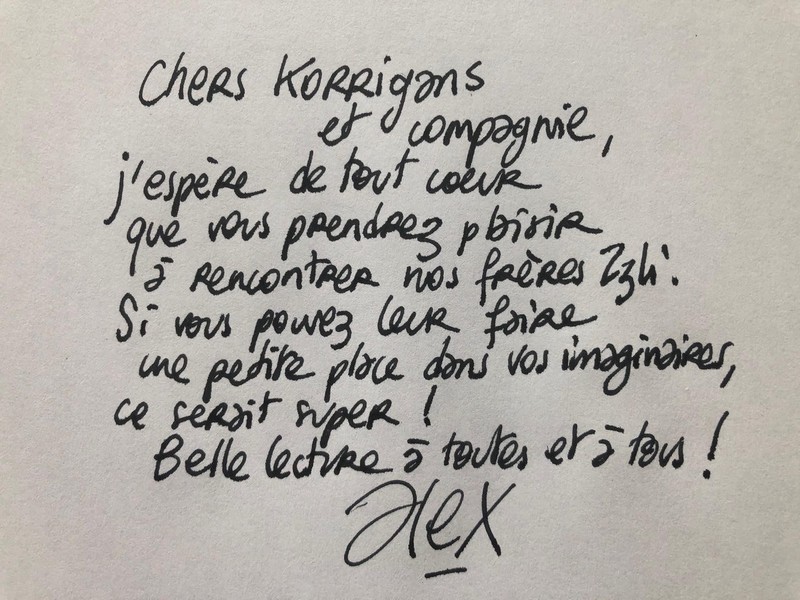 Chers Korrigans
et compagnie,
j'espère de tout coeur
que vous prendrez plaisir
à rencontrer nos frères Zzli.
Si vous pouvez leur faire
une petite place dans vos imaginaires,
ce serait super !
Belle lecture à toutes et à tous !
Alex